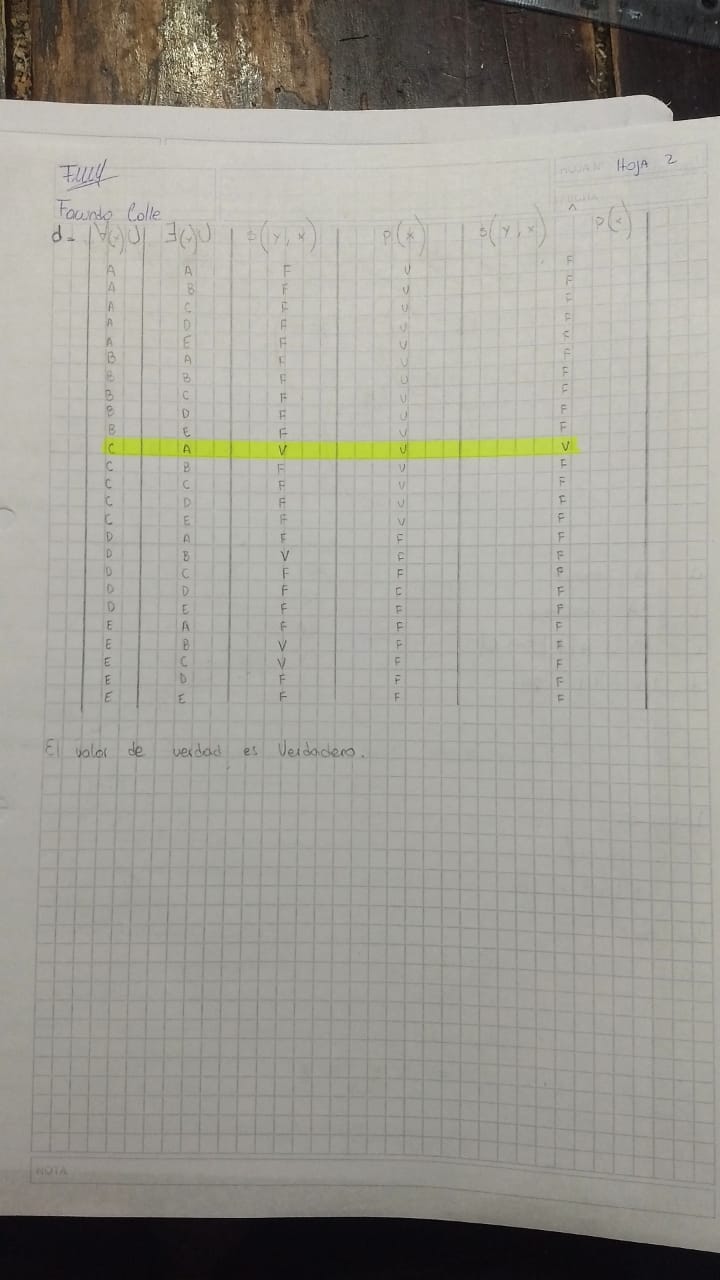 HOJA Nº Hoja 2
FECHA
Facundo Colle
d= ∀(x)U ∃(y)U s(y,x) p(x) s(y,x) ^ p(x)
A A F V F
A B F V F
A C F V F
A D F V F
A E F V F
B A F V F
B B F V F
B C F V F
B D F V F
B E F V F
C A V V V
C B F V F
C C F V F
C D F V F
C E F V F
D A F F F
D B V F F
D C F F F
D D F F F
D E F F F
E A F F F
E B V F F
E C V F F
E D F F F
E E F F F
El valor de verdad es Verdadero.
NOTA